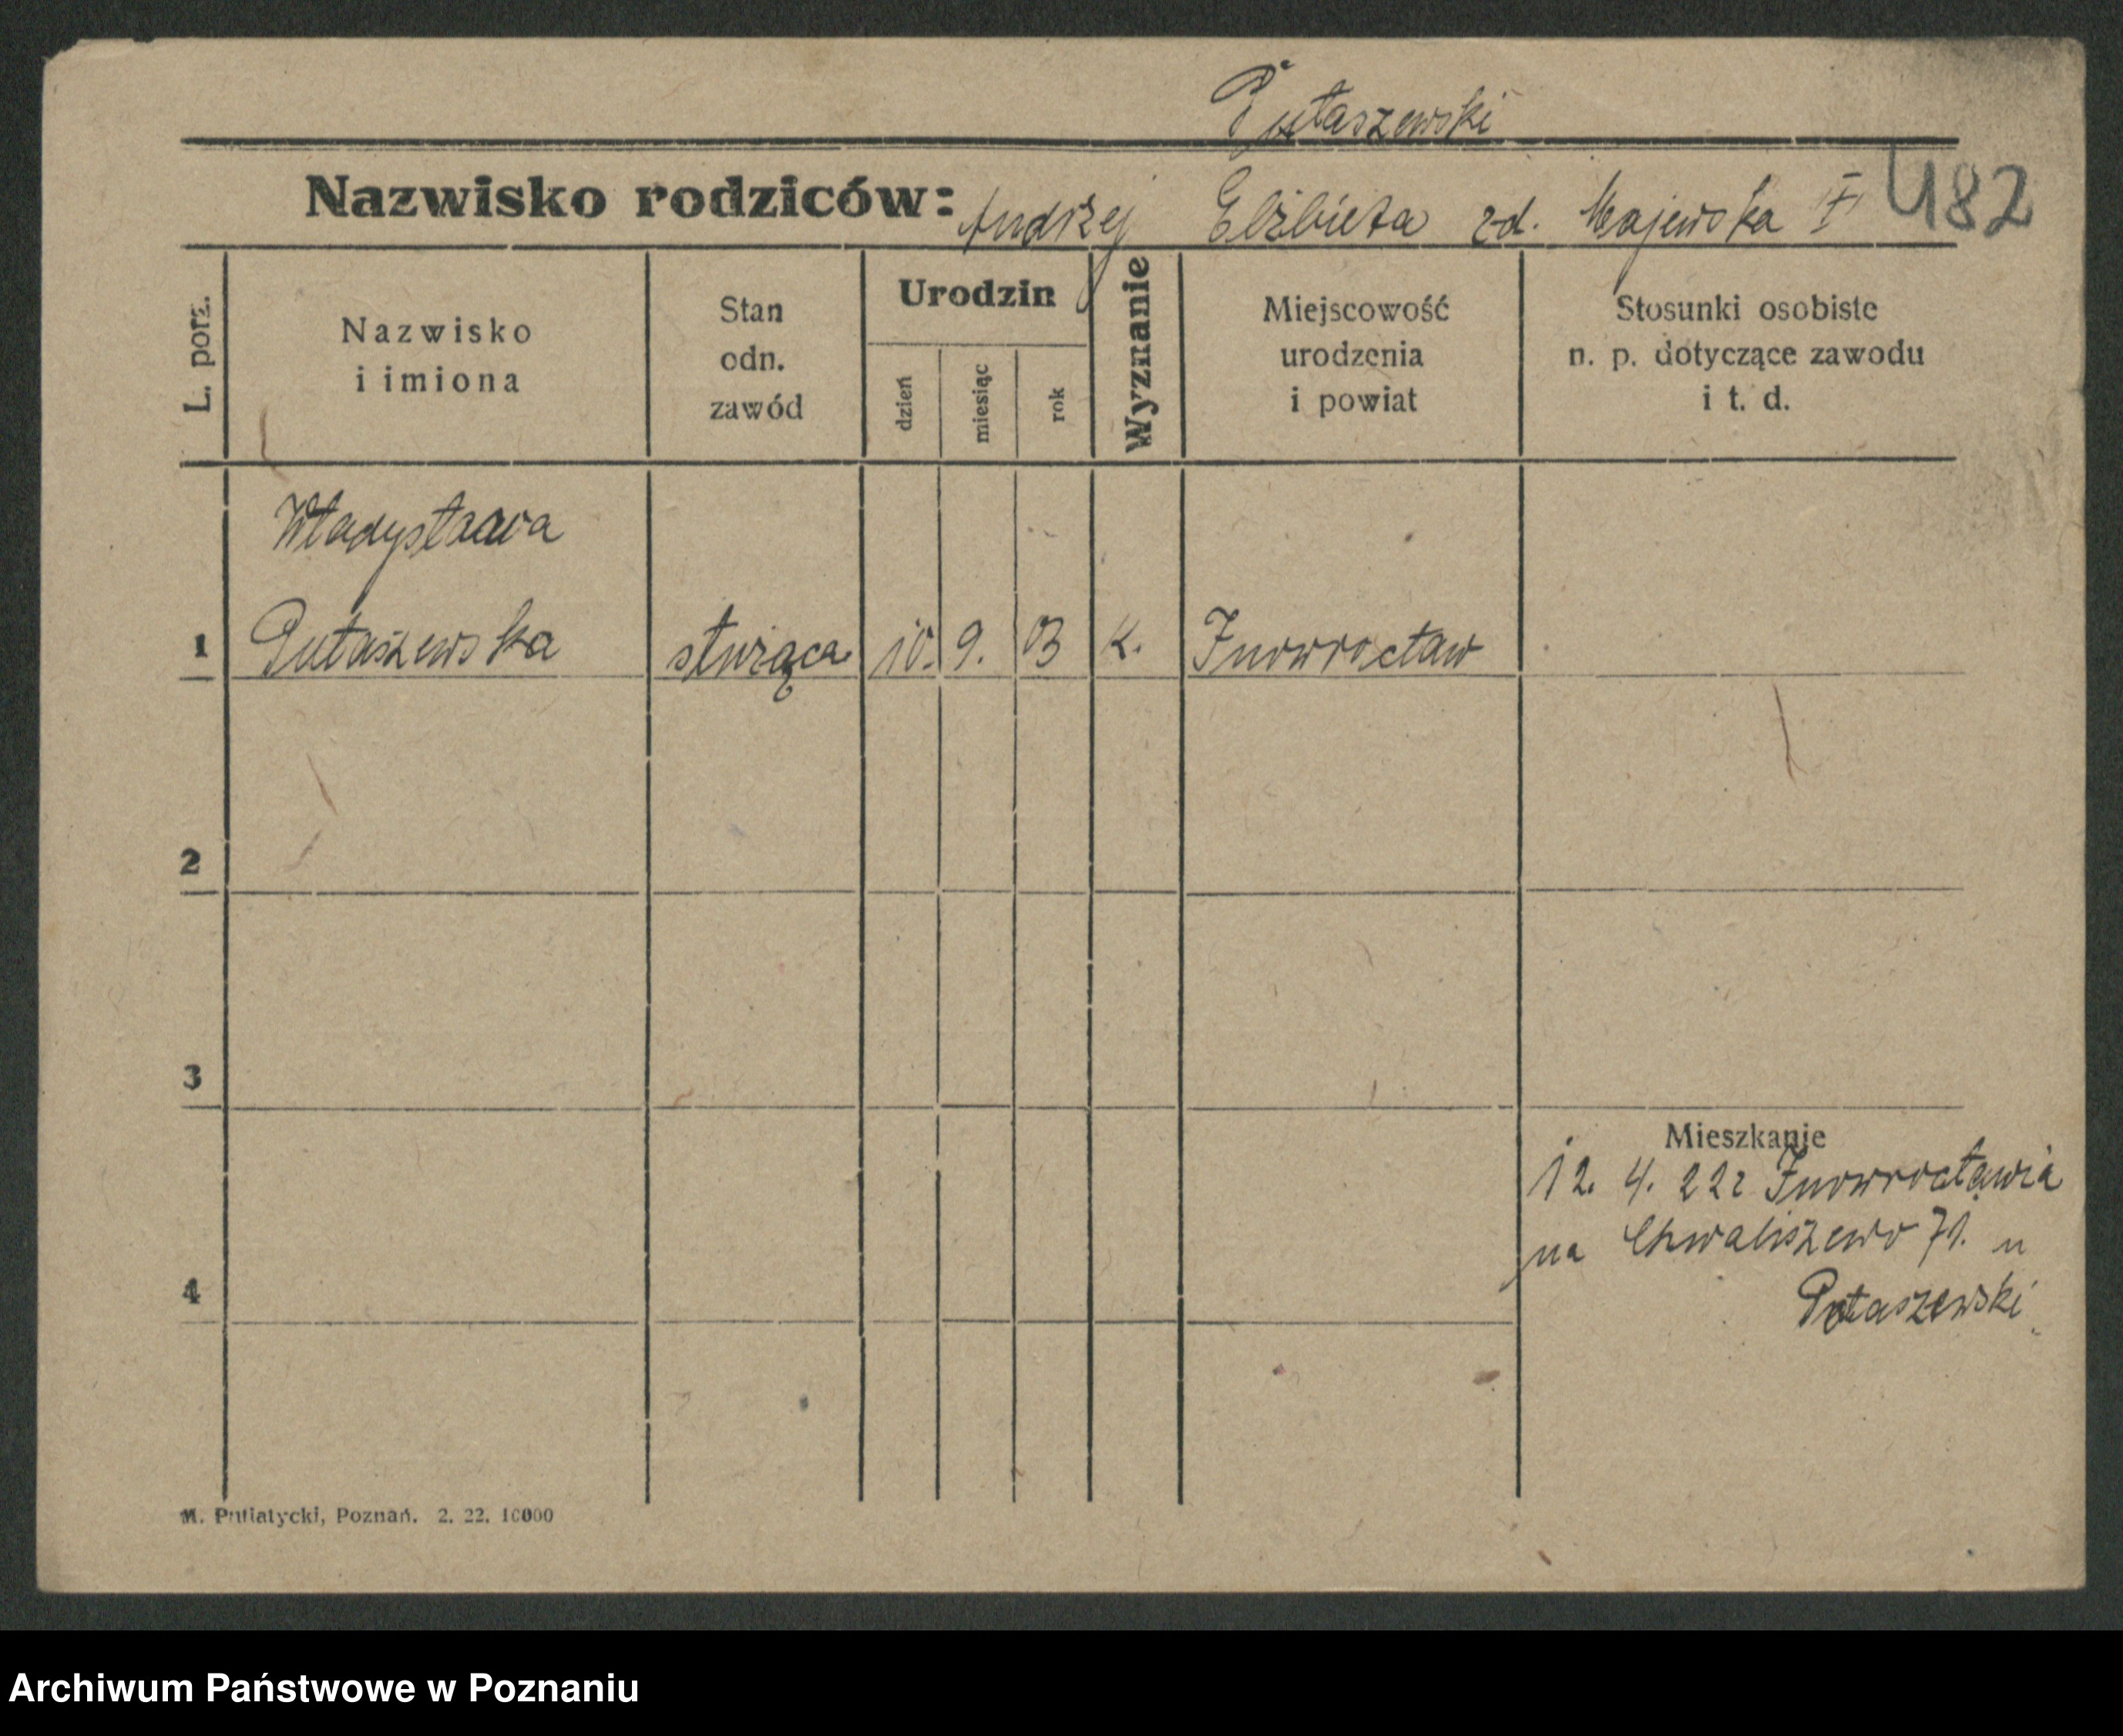 Pułaszewski
Nazwisko rodziców: Andrzej Elżbieta zd. Majewska
482
L. porz.
Nazwisko
i imiona
Stan
odn.
zawód
Urodzin
dzień
miesiąc
rok
Wyznanie
Miejscowość
urodzenia
i powiat
Stosunki osobiste
n. p. dotyczące zawodu
i t. d.
Władysława
1 Pułaszewska służąca 10. 9. 03 K. Inowrocław
2
3
Mieszkanie
12. 4. 22 z Inowrocławia
na Chwaliszewo 71. u
4
Pułaszewski
M. Putiatycki, Poznań. 2. 22. 10000
Archiwum Państwowe w Poznaniu